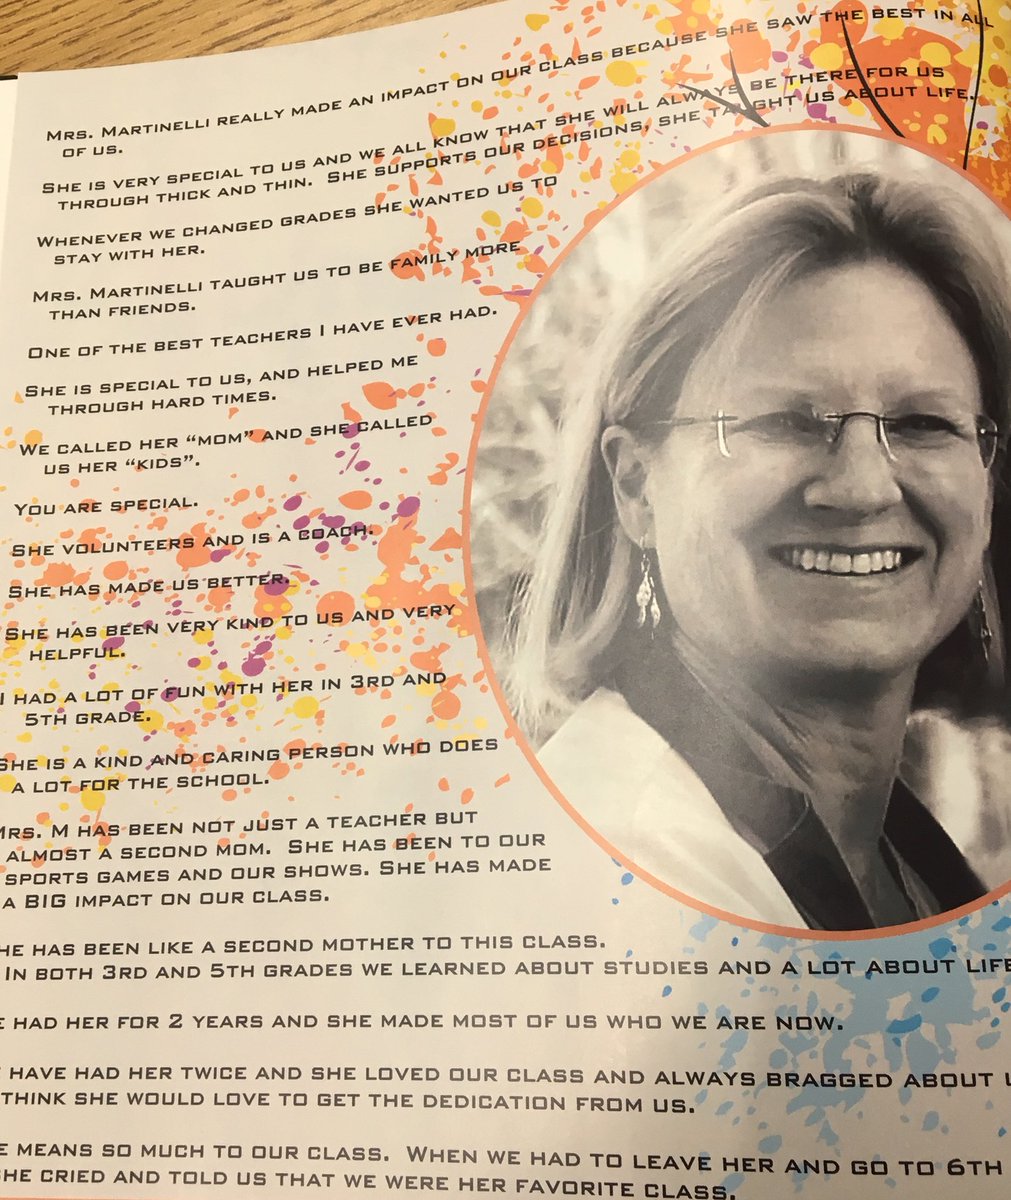 Mrs. Martinelli really made an impact on our class because she saw the best in all
of us.
She is very special to us and we all know that she will always be there for us
through thick and thin. She supports our decisions, she taught us about life.
Whenever we changed grades she wanted us to
stay with her.
Mrs. Martinelli taught us to be family more
than friends.
One of the best teachers I have ever had.
She is special to us, and helped me
through hard times.
We called her “mom” and she called
us her “kids”.
You are special.
She volunteers and is a coach.
She has made us better.
She has been very kind to us and very
helpful.
I had a lot of fun with her in 3rd and
5th grade.
She is a kind and caring person who does
a lot for the school.
Mrs. M has been not just a teacher but
almost a second mom. She has been to our
sports games and our shows. She has made
a BIG impact on our class.
he has been like a second mother to this class.
In both 3rd and 5th grades we learned about studies and a lot about life
e had her for 2 years and she made most of us who we are now.
have had her twice and she loved our class and always bragged about u
think she would love to get the dedication from us.
e means so much to our class. When we had to leave her and go to 6th
she cried and told us that we were her favorite class.